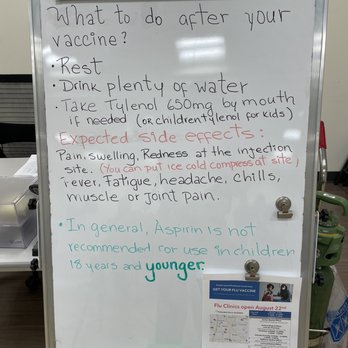 What to do after your
vaccine?
• Rest
• Drink plenty of water
• Take Tylenol 650mg by mouth
if needed (OR children tylenol for kids)
Expected side effects:
Pain, swelling, Redness at the injection
site. (You can put ice cold compress at site)
Fever, Fatigue, headache, chills,
muscle or joint pain.
• In general, Aspirin is not
recommended for use in children
18 years and younger.
GET YOUR FLU VACCINE
Flu Clinics open August 22nd